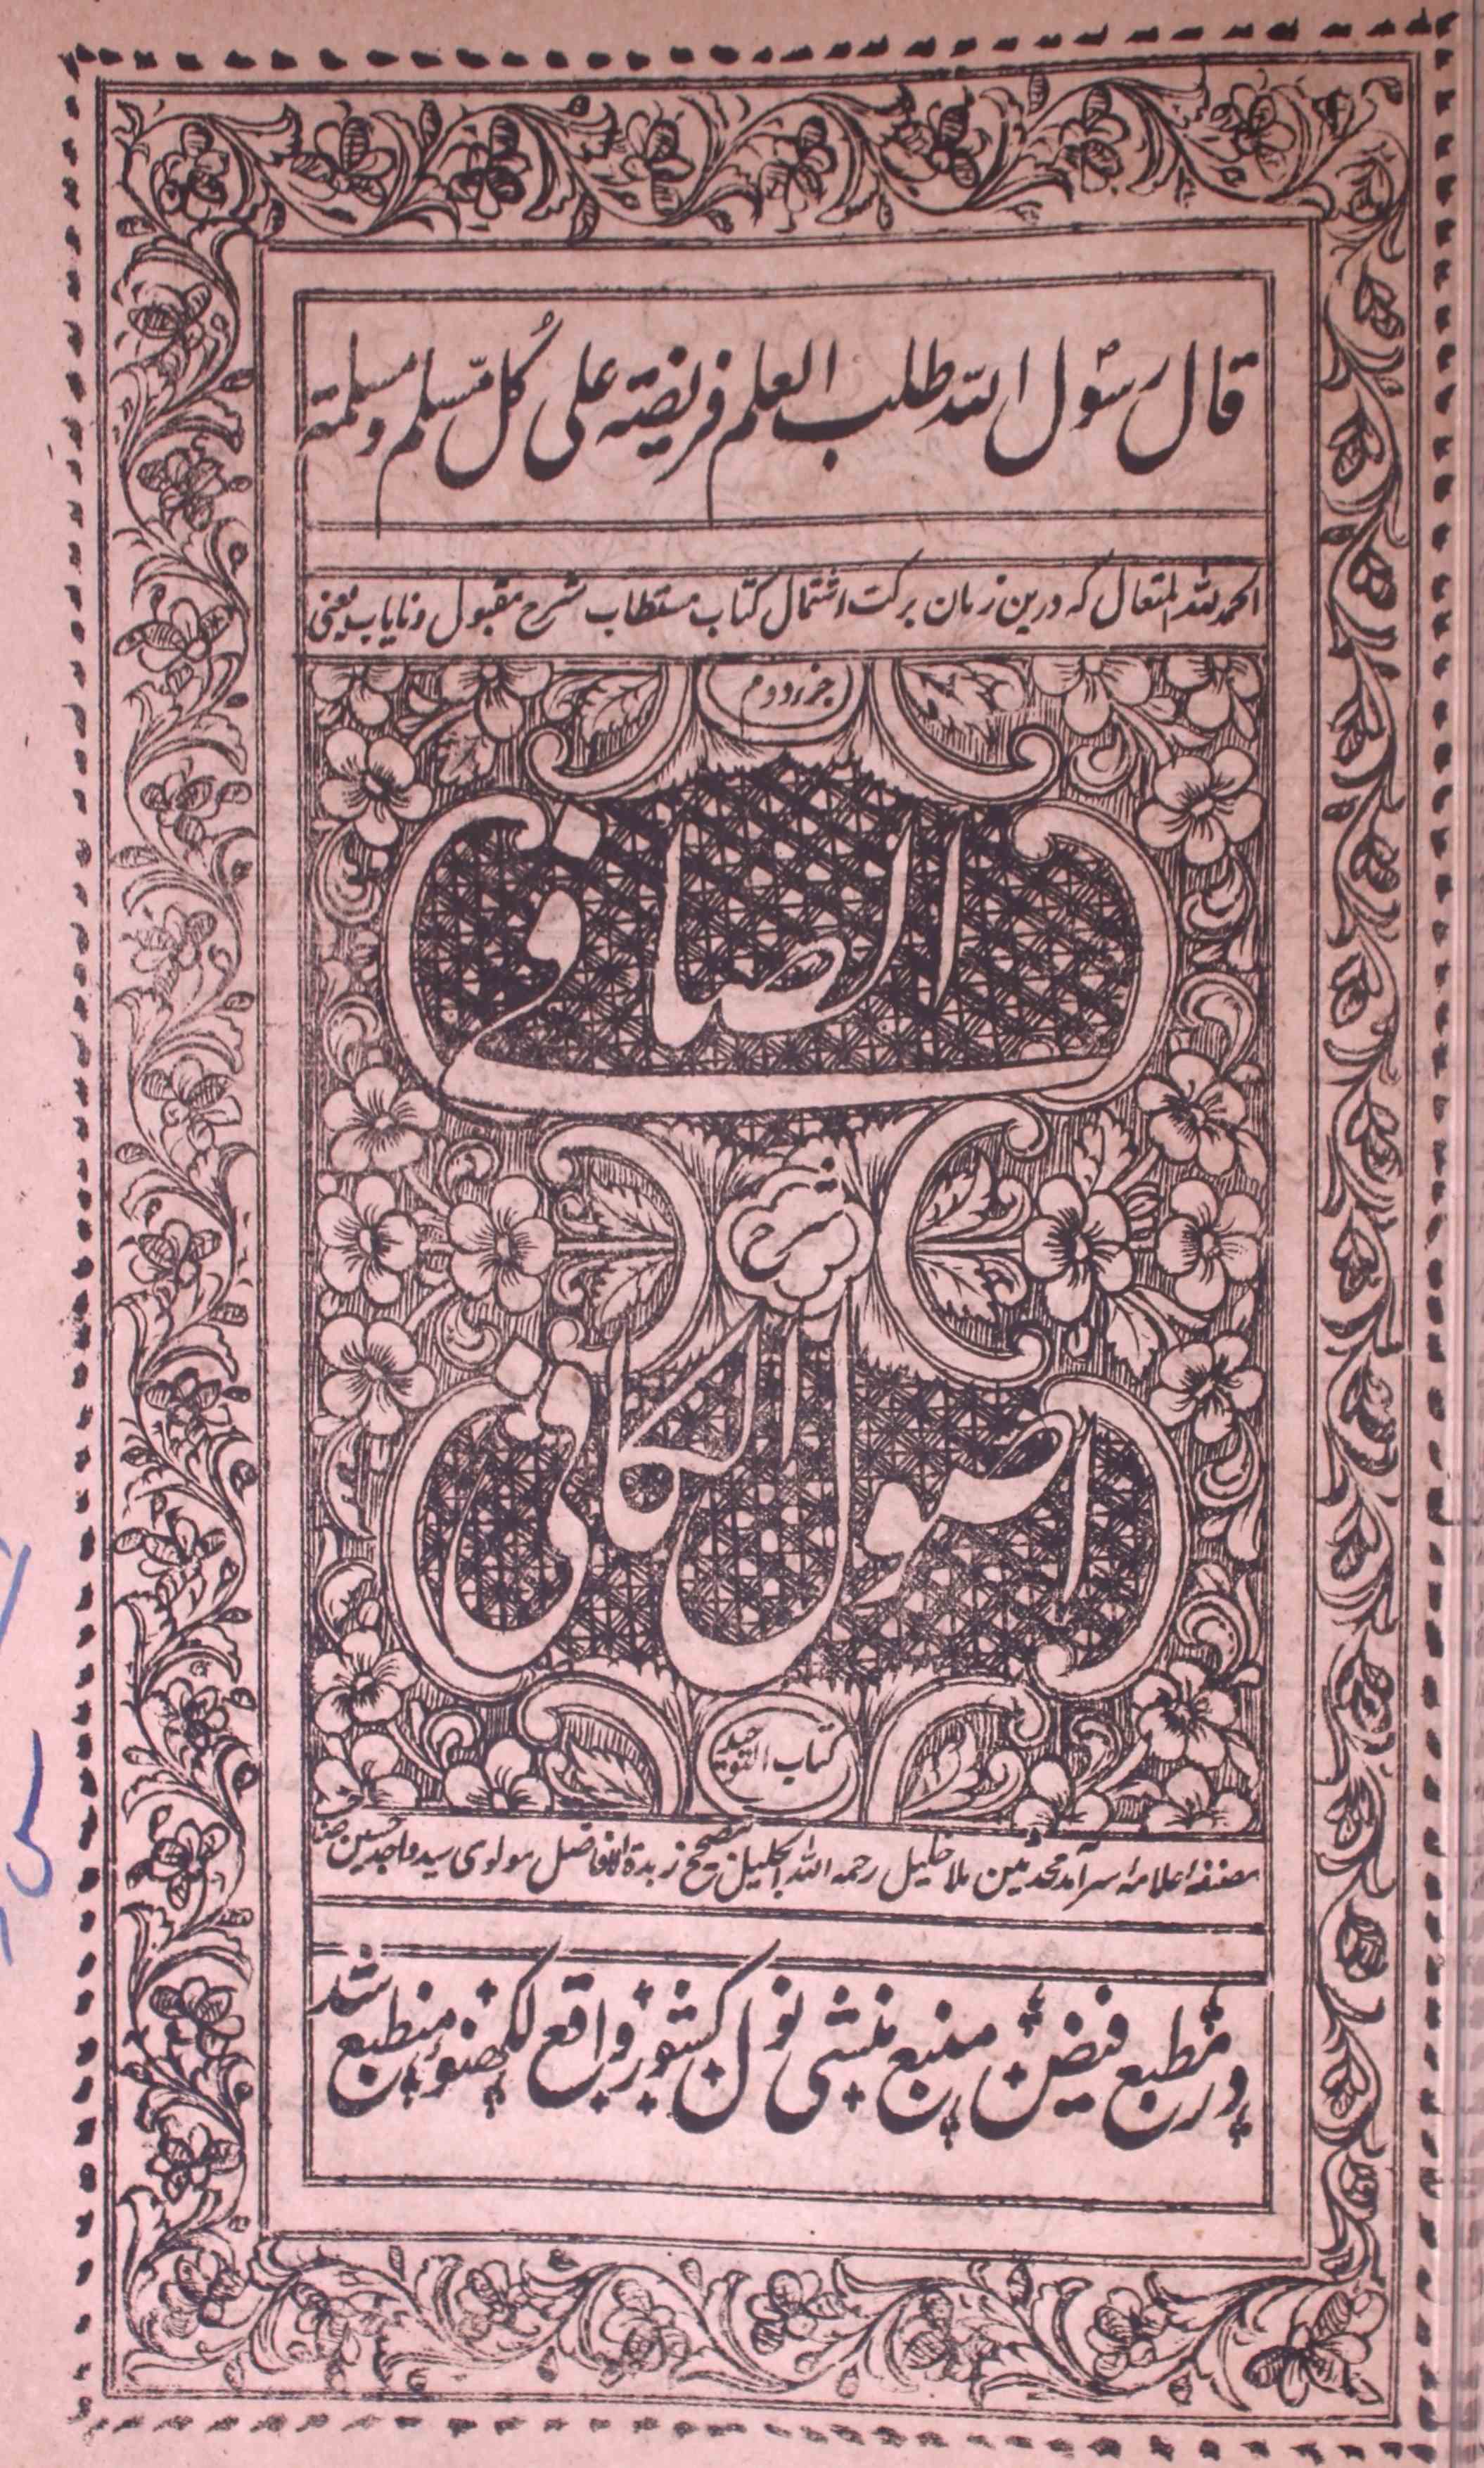 قال رسول الله طلب العلم فریضته علی کُل مسلم و مسلمة
الحمد لله المتعال که درین زمان برکت اشتمال کتاب مستطاب شرح مقبول و نایاب یعنی
جزء دوم
الصافی
شرح
اصول الکافی
کتاب التوحید
مصنفه علامه سرآمد محدثین ملا خلیل رحمه الله الجلیل بتصحیح زبدة الافاضل مولوی سید واجد حسین صاحب
در مطبع فیض منبع منشی نول کشور واقع لکهنو منطبع شد